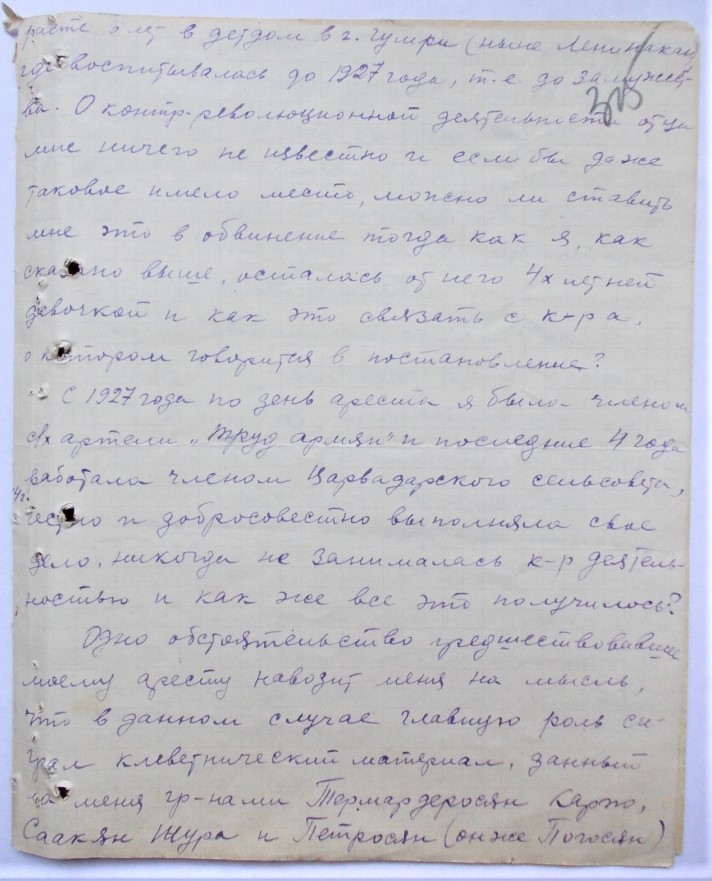 расте 5 лет в детдом в г. Гумри (ныне Ленинакан)
где воспитывалась до 1927 года, т.е. до замужест-
ва. О контр-революционной деятельности отца
мне ничего не известно и если бы даже
таковое имело место, можно ли ставить
мне это в обвинение тогда как я, как
сказано выше, осталась от него 4х летней
девочкой и как это связать с к-р а,
о котором говорится в постановление?
С 1927 года по день ареста я была членом
с/х артели „Труд армян" и последние 4 года
работала членом Царвадарского сельсовета,
честно и добросовестно выполняла свое
дело, никогда не занималась к-р деятель-
ностью и как же все это получилось?
Одно обстоятельство предшествовавшее
моему аресту наводит меня на мысль,
что в данном случае главную роль сы-
грал клеветнический материал, данный
на меня гр-нами Термардеросян Карпо,
Саакян Шура и Петросян (он же Погосян)